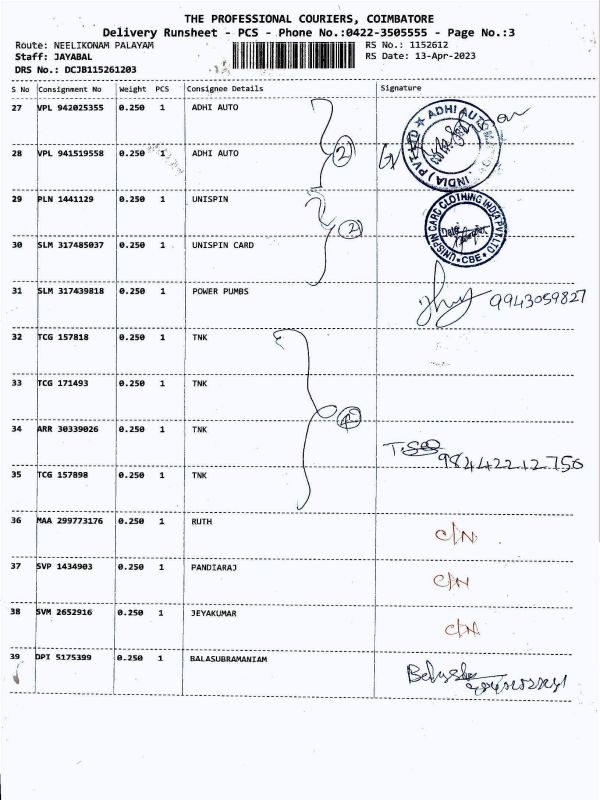 THE PROFESSIONAL COURIERS, COIMBATORE
Delivery Runsheet - PCS - Phone No.:0422-3505555 - Page No.:3
Route: NEELIKONAM PALAYAM RS No.: 1152612
Staff: JAYABAL RS Date: 13-Apr-2023
DRS No.: DCJB115261203
S No Consignment No Weight PCS Consignee Details Signature
27 VPL 942025355 0.250 1 ADHI AUTO
ADHI AUTO
INDIA) PVT LTD
28 VPL 941519558 0.250 1 ADHI AUTO
2
29 PLN 1441129 0.250 1 UNISPIN
UNISPIN CARD CLOTHING INDIA PVT LTD
CBE
2
30 SLM 317485037 0.250 1 UNISPIN CARD
31 SLM 317439818 0.250 1 POWER PUMBS 9943059827
32 TCG 157818 0.250 1 TNK
33 TCG 171493 0.250 1 TNK
4
34 ARR 30339026 0.250 1 TNK
35 TCG 157898 0.250 1 TNK
36 MAA 299773176 0.250 1 RUTH C/N
37 SVP 1434903 0.250 1 PANDIARAJ C/N
38 SVM 2652916 0.250 1 JEYAKUMAR C/N
39 DPI 5175399 0.250 1 BALASUBRAMANIAM